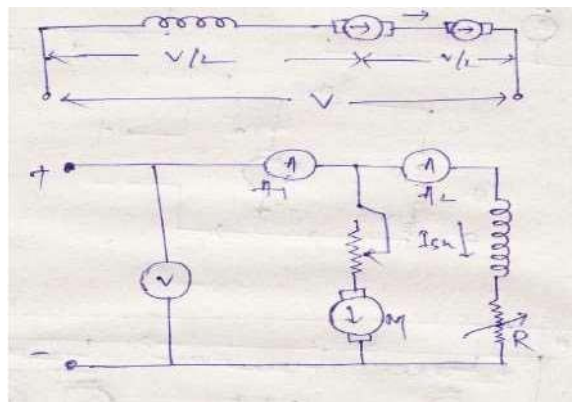 V/2 V/2
V
+ A A
A1 A2
Ish
V
M
R
-